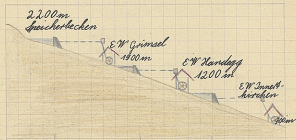 2200m
Speicherbecken
EW Grimsel
1900m
EW Handegg
1200m
EW Innert-
kirchen